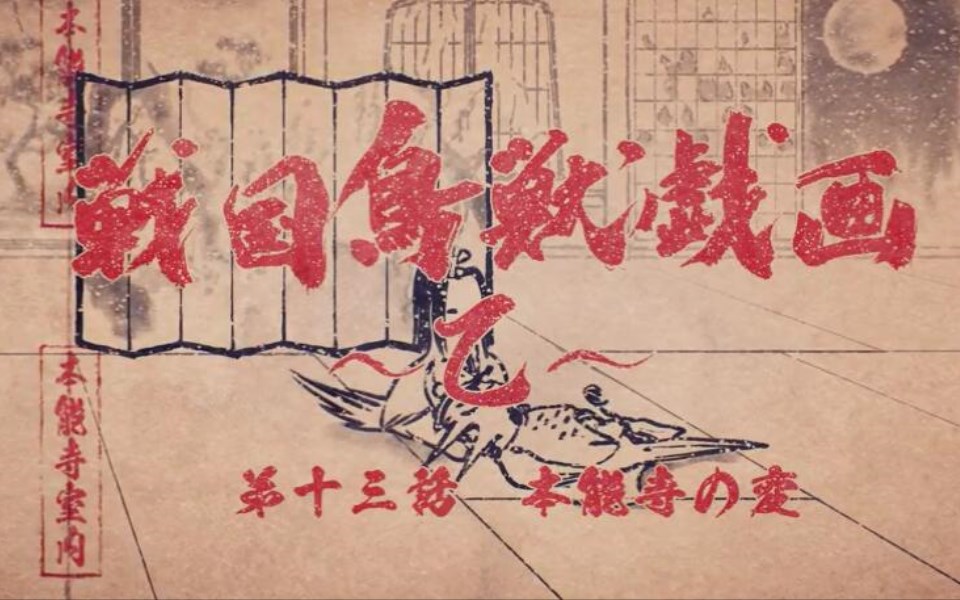 本能寺室内
戦国鳥獣戯画
～乙～
第十三話 本能寺の変
本能寺室内